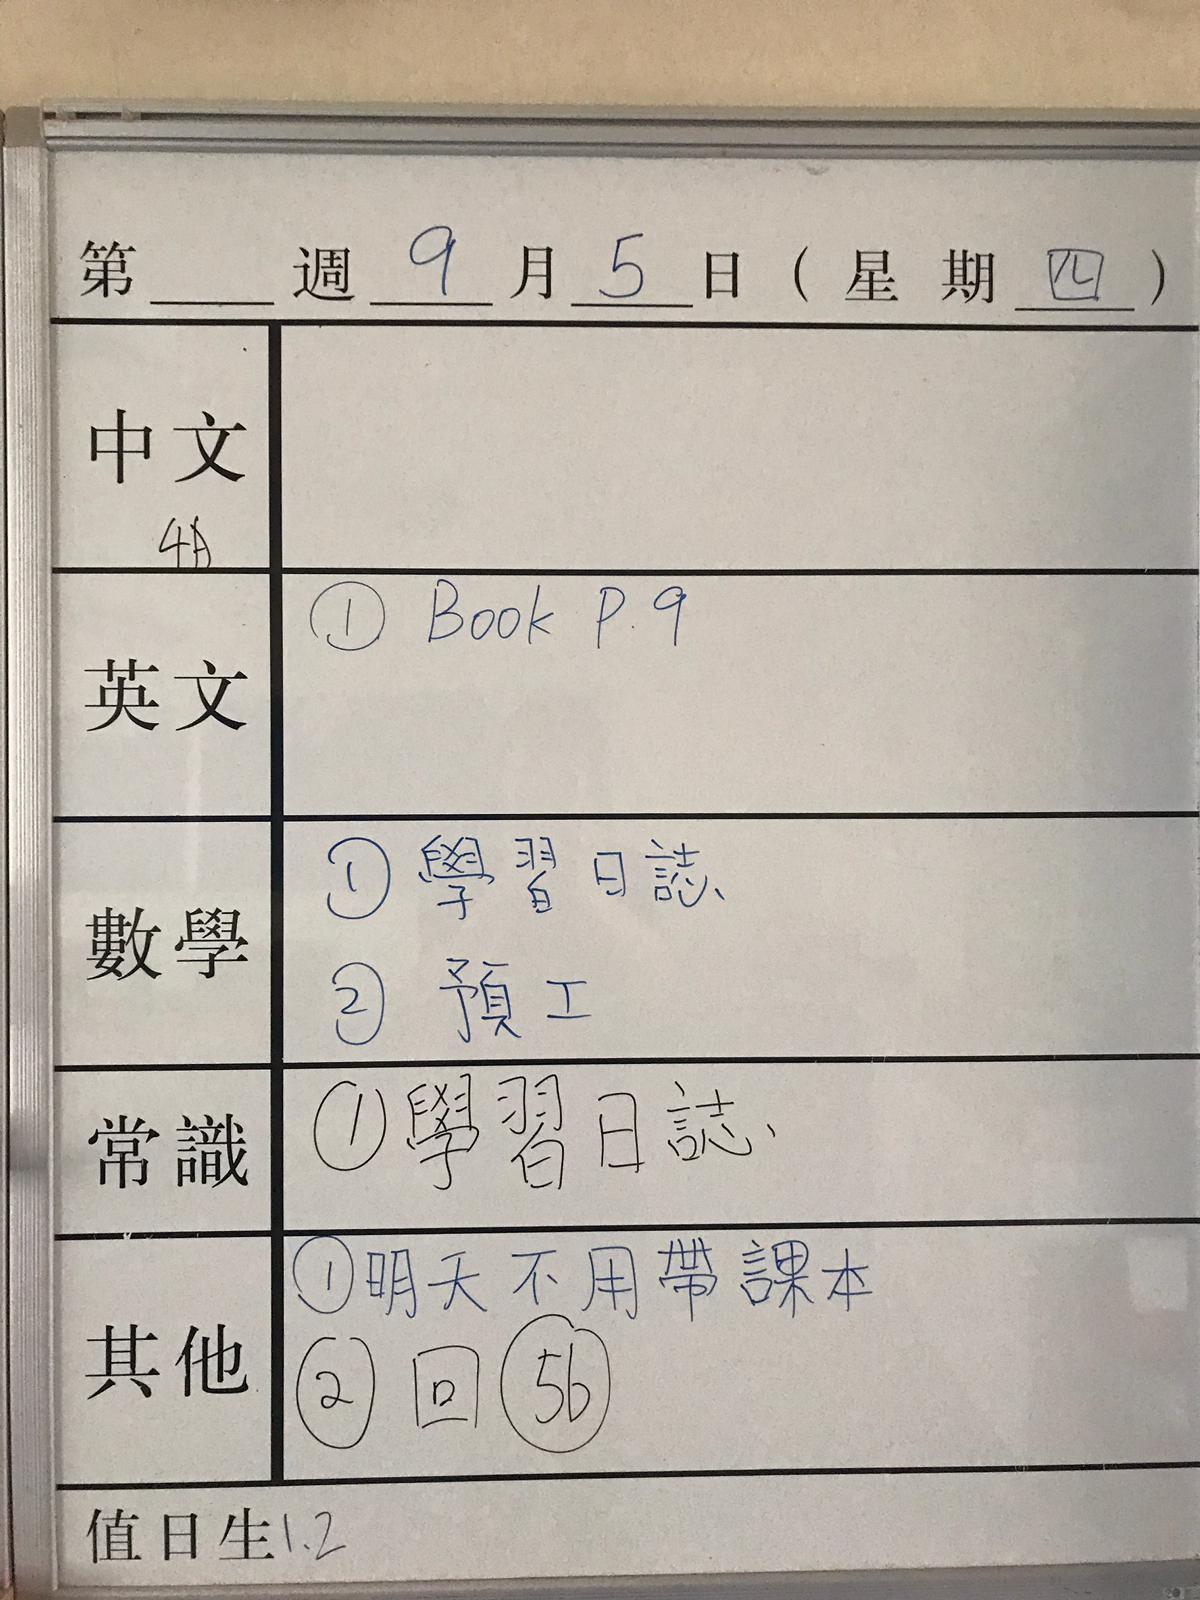 第 週 9 月 5 日 ( 星 期 四 )
中文
4A
英文
① Book P.9
數學
① 學習日誌、
② 預工
常識
① 學習日誌、
其他
① 明天不用帶課本
② 回 56
值日生 1.2